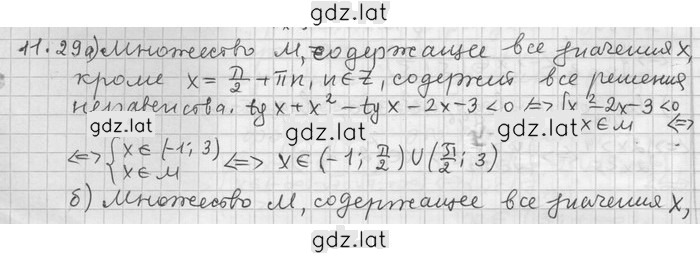 gdz.lat
11.29а) Множество M, содержащее все значения x,
кроме x = π/2 + πn, n∈Z, содержит все решения
неравенства. tg x + x² − tg x − 2x − 3 < 0 ⇔ { x² − 2x − 3 < 0
gdz.lat gdz.lat gdz.lat x ∈ M ⇔
⇔ { x ∈ (−1; 3) ⇔ x ∈ (−1; π/2) ∪ (π/2; 3)
x ∈ M
gdz.lat gdz.lat
б) Множество M, содержащее все значения x,
gdz.lat